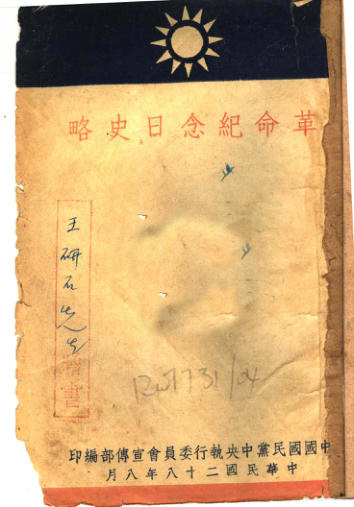 革命紀念日史略
王研石先生
贈書
中國國民黨中央執行委員會宣傳部編印
中華民國二十八年八月